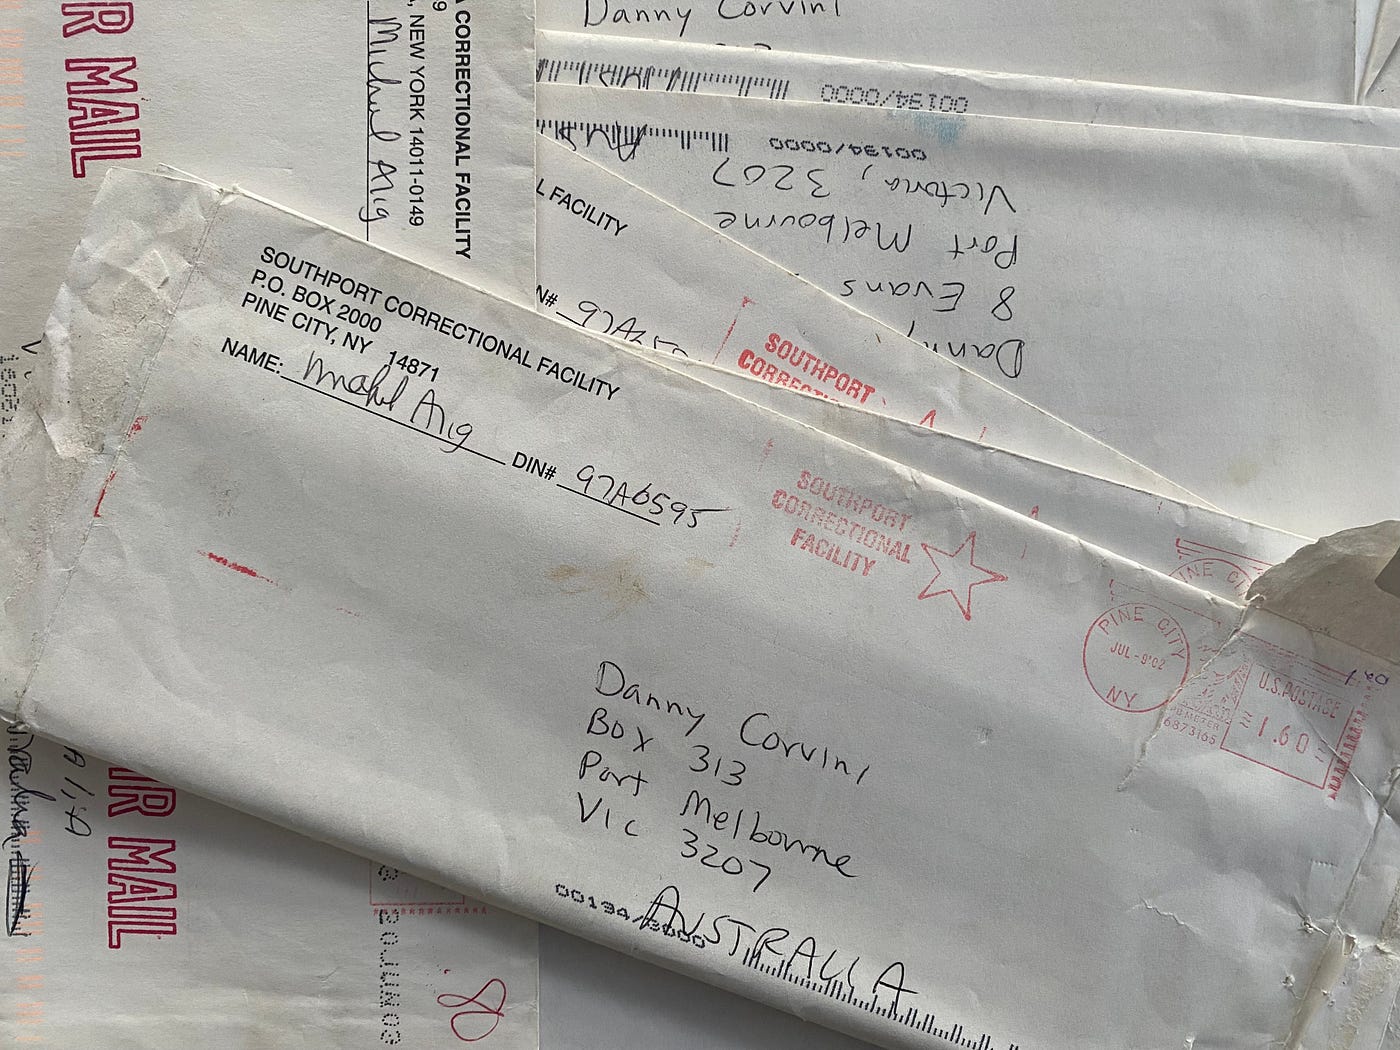 R MAIL
A CORRECTIONAL FACILITY
9
, NEW YORK 14011-0149
Michael Alig
Danny Corvini
00134/0000
00134/0000
Victoria, 3207
Port Melbourne
8 Evans
Danny
L FACILITY
N# 97A6595
SOUTHPORT
CORRECTI
SOUTHPORT CORRECTIONAL FACILITY
P.O. BOX 2000
PINE CITY, NY 14871
NAME: Michael Alig DIN# 97A6595
SOUTHPORT
CORRECTIONAL
FACILITY
PINE CITY
JUL -9'02
NY
PINE CI
U.S. POSTAGE
1.60
METER
6873165
Danny Corvini
Box 313
Port Melbourne
Vic 3207
AUSTRALIA
00134/0000
IR MAIL
20JUN03
80